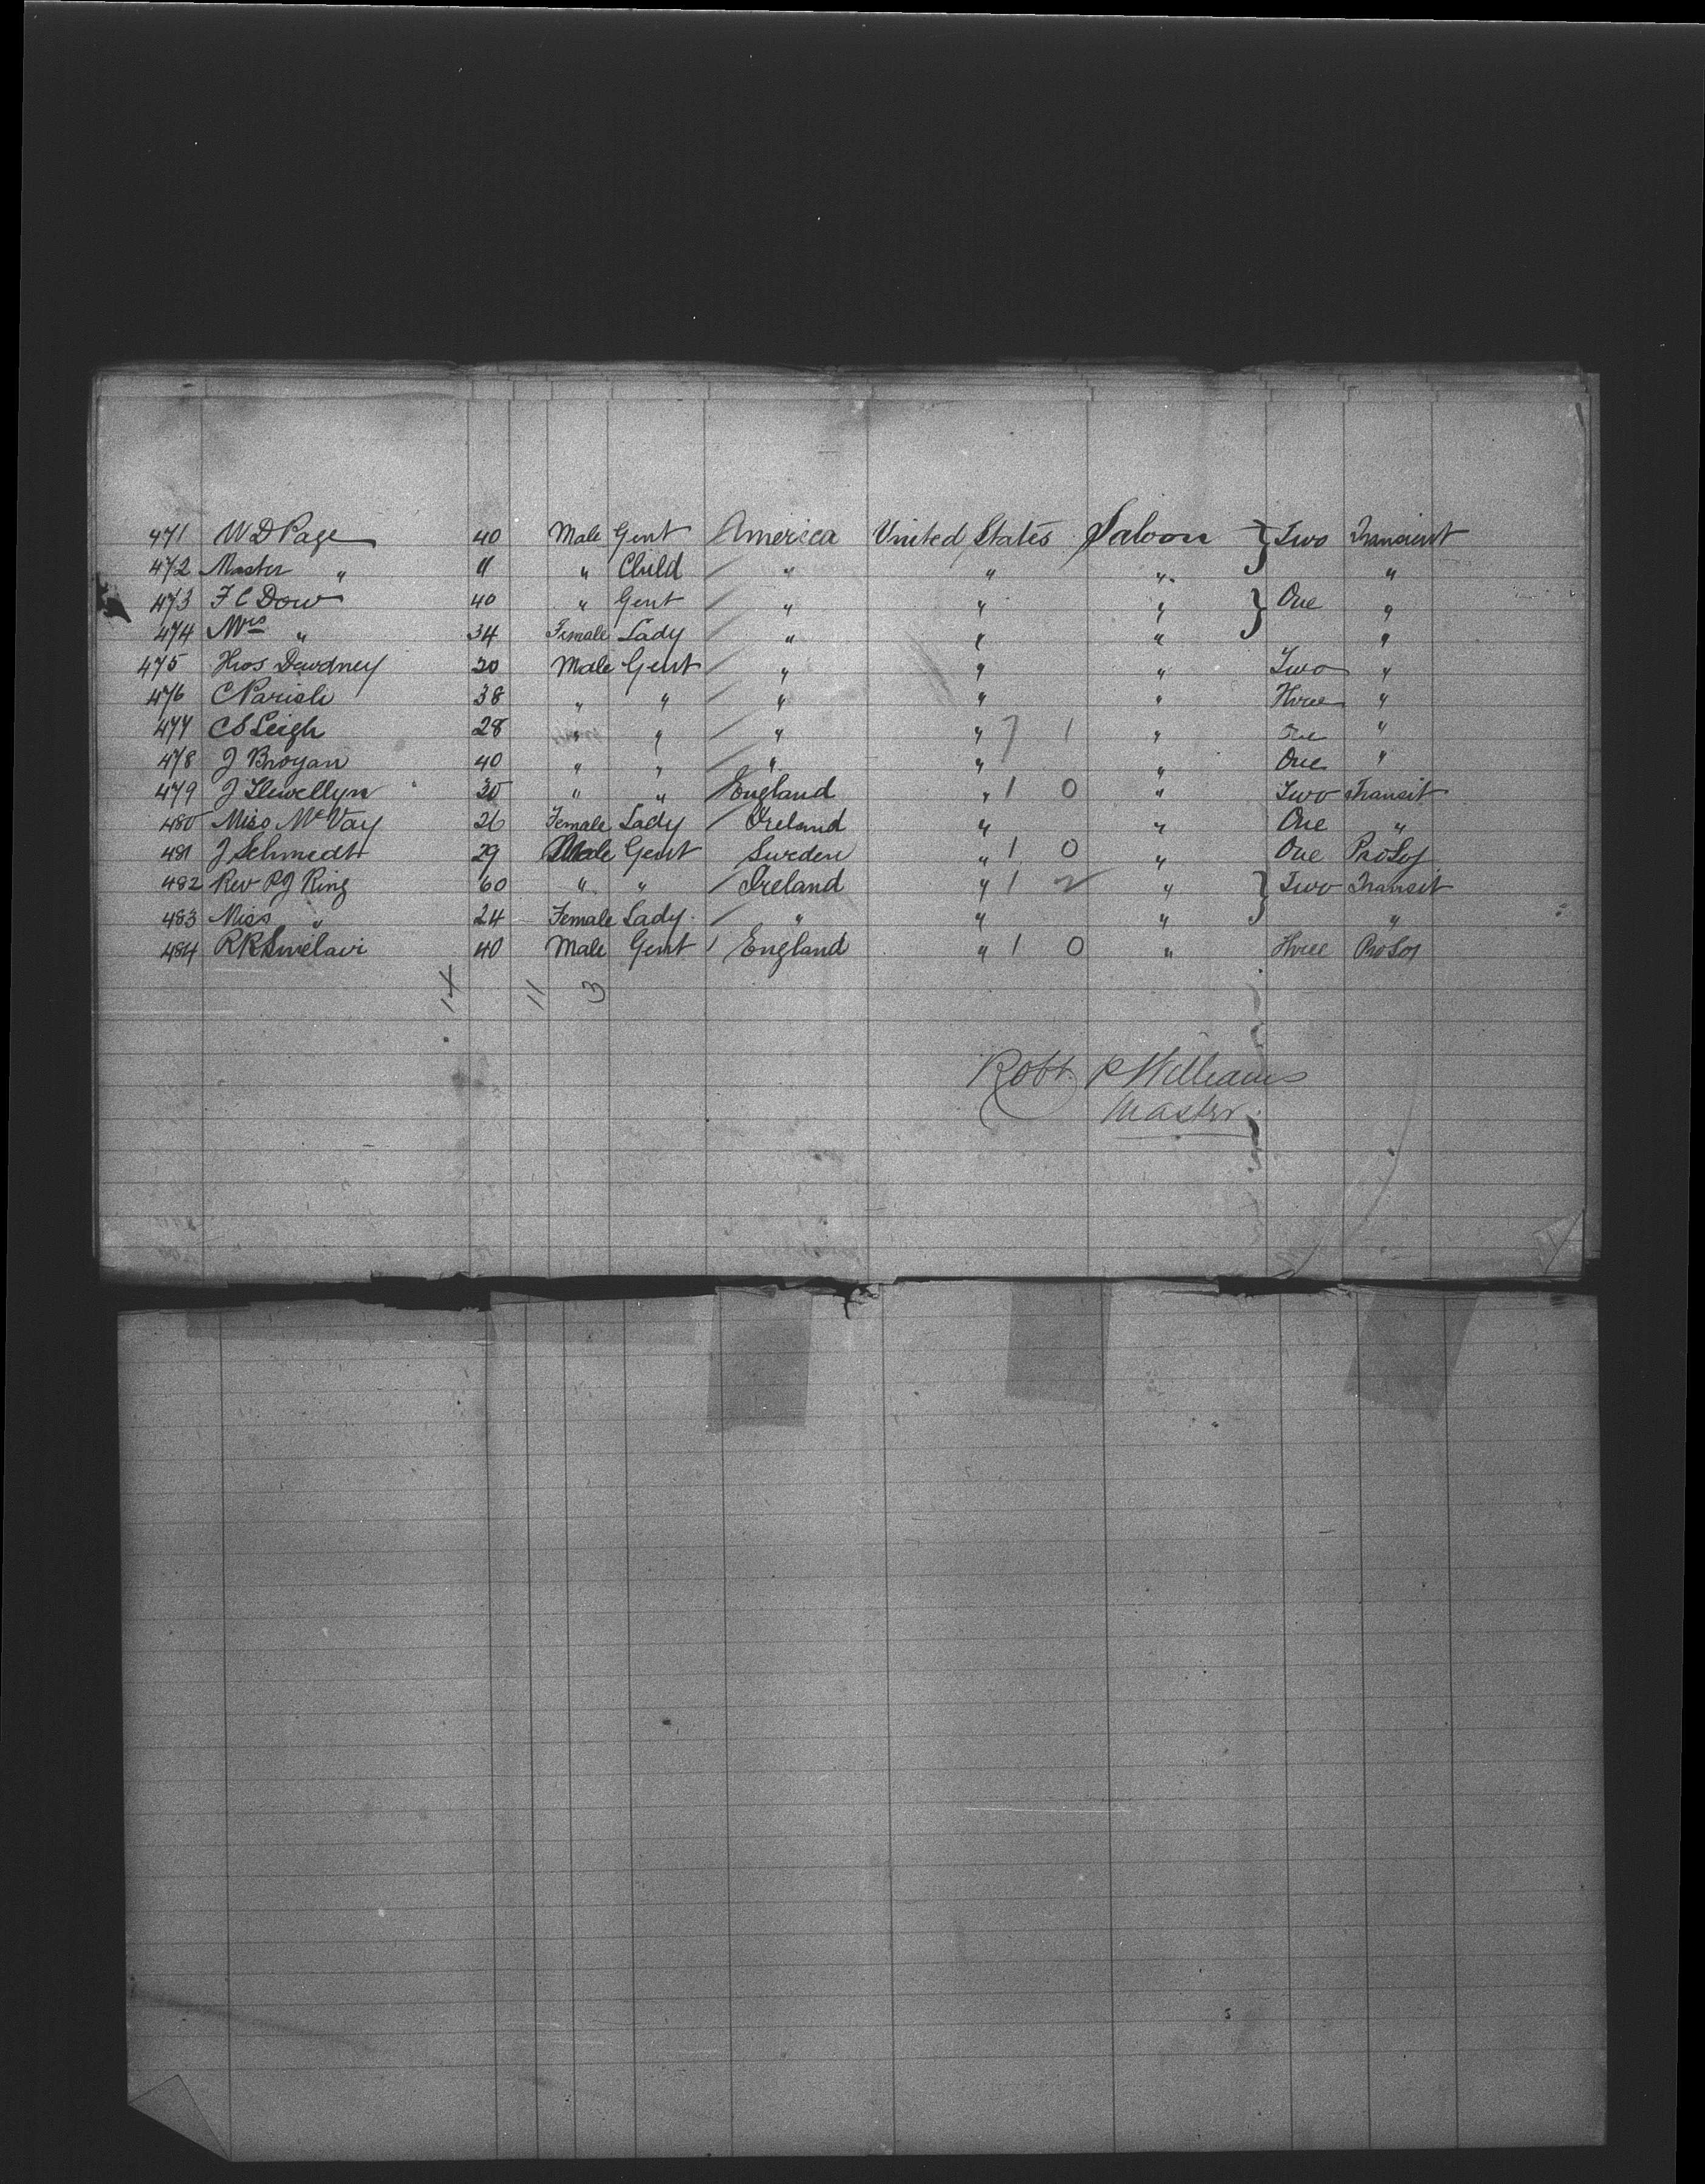 471 W D Page 40 Male Gent America United States Saloon } Two Transient
472 Master " 11 " Child " " " "
473 F C Dow 40 " Gent " " " } One "
474 Mrs " 34 Female Lady " " " "
475 Thos Dewdney 20 Male Gent " " " Two "
476 C Parish 38 " " " " " Three "
477 C S Leigh 28 " " " " 7 1 " One "
478 J Broyan 40 " " " " " One "
479 J Llewellyn 30 " " England " 1 0 " Two Transit
480 Miss McVay 26 Female Lady Ireland " " One "
481 J Schmedt 29 Male Gent Sweden " 1 0 " One ProSoj
482 Rev P J Ring 60 " " Ireland " 1 2 " } Two Transit
483 Miss " 24 Female Lady " " " "
484 R R Sinclair 40 Male Gent England " 1 0 " Three ProSoj
14 11 3
Robt P Williams
Master